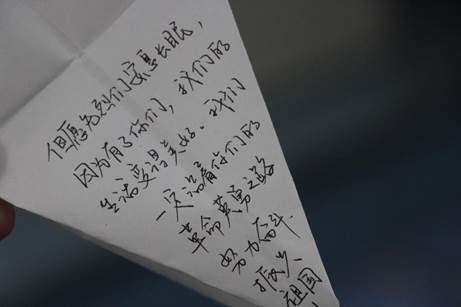 但愿先烈们安息长眠，
因为有了你们，我们的
生活变得美好。我们
一定沿着你们的
革命英勇之路
努力奋斗
振兴
祖国